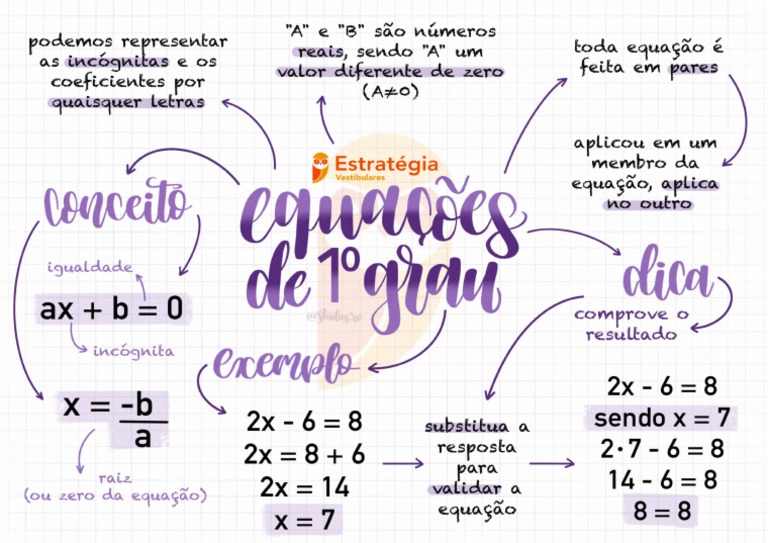 podemos representar
as incógnitas e os
coeficientes por
quaisquer letras
"A" e "B" são números
reais, sendo "A" um
valor diferente de zero
(A≠0)
toda equação é
feita em pares
aplicou em um
membro da
equação, aplica
no outro
Estratégia
Vestibulares
equações
de 1º grau
conceito
igualdade
ax + b = 0
incógnita
x = -b
a
raiz
(ou zero da equação)
exemplo
2x - 6 = 8
2x = 8 + 6
2x = 14
x = 7
substitua a
resposta
para
validar a
equação
dica
comprove o
resultado
2x - 6 = 8
sendo x = 7
2·7 - 6 = 8
14 - 6 = 8
8 = 8